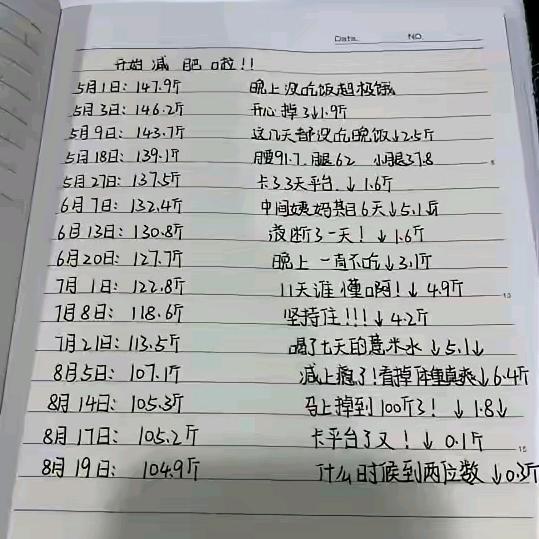 Data. NO.
开始减肥啦!!
5月1日: 147.9斤 晚上没吃饭超极饿
5月3日: 146.2斤 开心掉了↓1.9斤
5月9日: 143.7斤 这几天都没吃晚饭↓2.5斤
5月18日: 139.1斤 腰91.7 腿62 小腿37.8
5月27日: 137.5斤 卡了3天平台 ↓1.6斤
6月7日: 132.4斤 中间姨妈期6天↓5.1斤
6月13日: 130.8斤 放断了一天! ↓1.6斤
6月20日: 127.7斤 晚上一直不吃↓3.1斤
7月1日: 122.8斤 11天谁懂啊! ↓4.9斤
7月8日: 118.6斤 坚持住!!! ↓4.2斤
7月21日: 113.5斤 喝了七天的薏米水↓5.1↓
8月5日: 107.1斤 减上瘾了!看掉体重真爽↓6.4斤
8月14日: 105.3斤 马上掉到100斤了! ↓1.8↓
8月17日: 105.2斤 卡平台了又! ↓0.1斤
8月19日: 104.9斤 什么时候到两位数↓0.3斤